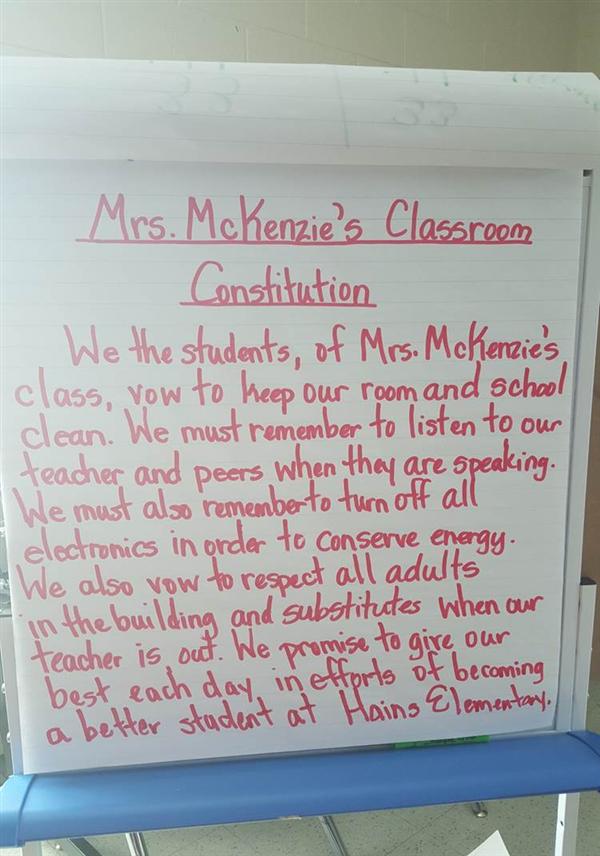 Mrs. McKenzie's Classroom
Constitution
We the students, of Mrs. McKenzie's
class, vow to keep our room and school
clean. We must remember to listen to our
teacher and peers when they are speaking.
We must also remember to turn off all
electronics in order to conserve energy.
We also vow to respect all adults
in the building and substitutes when our
teacher is out. We promise to give our
best each day in efforts of becoming
a better student at Hains Elementary.